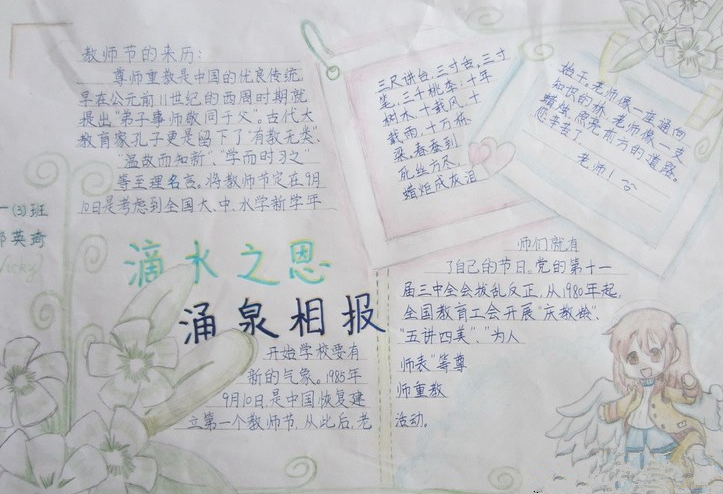 教师节的来历:
尊师重教是中国的优良传统,
早在公元前11世纪的西周时期就
提出"弟子事师敬同于父"。古代大
教育家孔子更是留下了"有教无类"、
"温故而知新"、"学而时习之"
等至理名言。将教师节定在9月
10日是考虑到全国大、中、小学新学年
一(3)班
英琦
Vicky
滴水之恩
涌泉相报
开始学校要有
新的气象。1985年
9月10日,是中国恢复建
立第一个教师节,从此后,老
三尺讲台,三寸舌,三寸
笔,三千桃李;十年
树木,十载风,十
载雨,十万栋
梁。春蚕到
死丝方尽,
蜡炬成灰泪
老师像一座通向
知识的桥,老师像一支
蜡烛,照亮前方的道路。
您辛苦了,
老师!
师们就有
了自己的节日。党的第十一
届三中全会拨乱反正,从1980年起,
全国教育工会开展"庆教龄、
"五讲四美"、"为人
师表"等尊
师重教
活动。